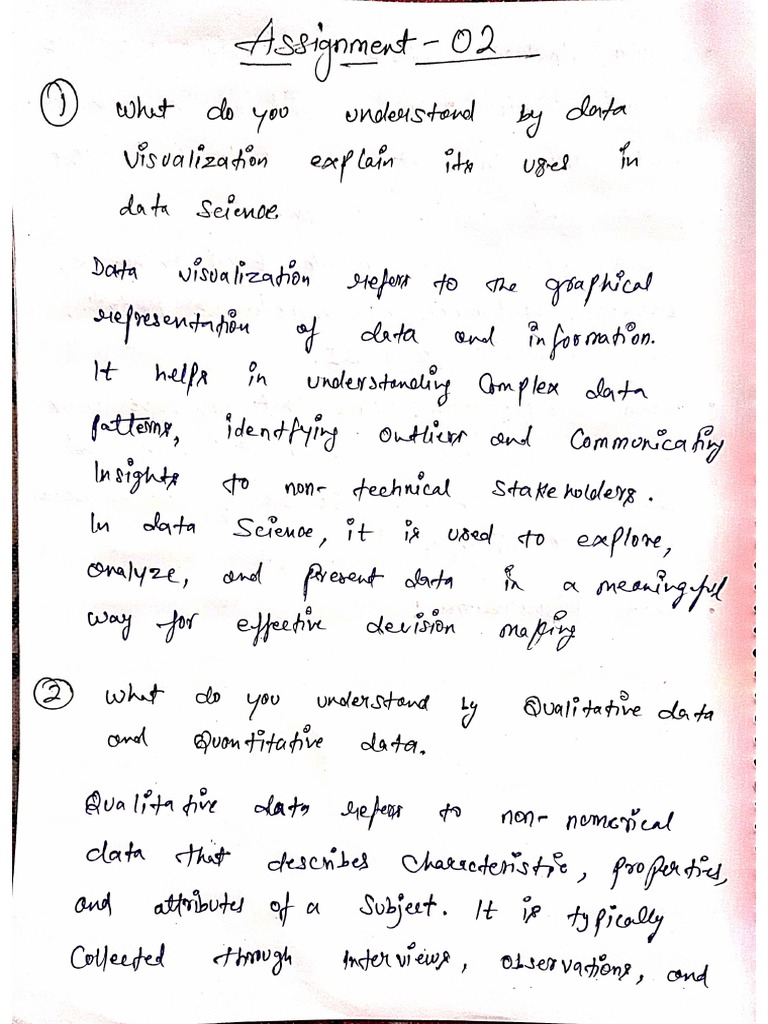 Assignment - 02
① What do you understand by data
visualization explain its uses in
data science.
Data visualization refers to the graphical
representation of data and information.
It helps in understanding Complex data
patterns, identifying outliers and Communicating
Insights to non-technical stakeholders.
In data Science, it is used to explore,
analyze, and present data in a meaningful
way for effective decision making
② What do you understand by Qualitative data
and Quantitative data.
Qualitative data refers to non-numerical
data that describes characteristic, properties,
and attributes of a Subject. It is typically
Collected through interviews, observations, and